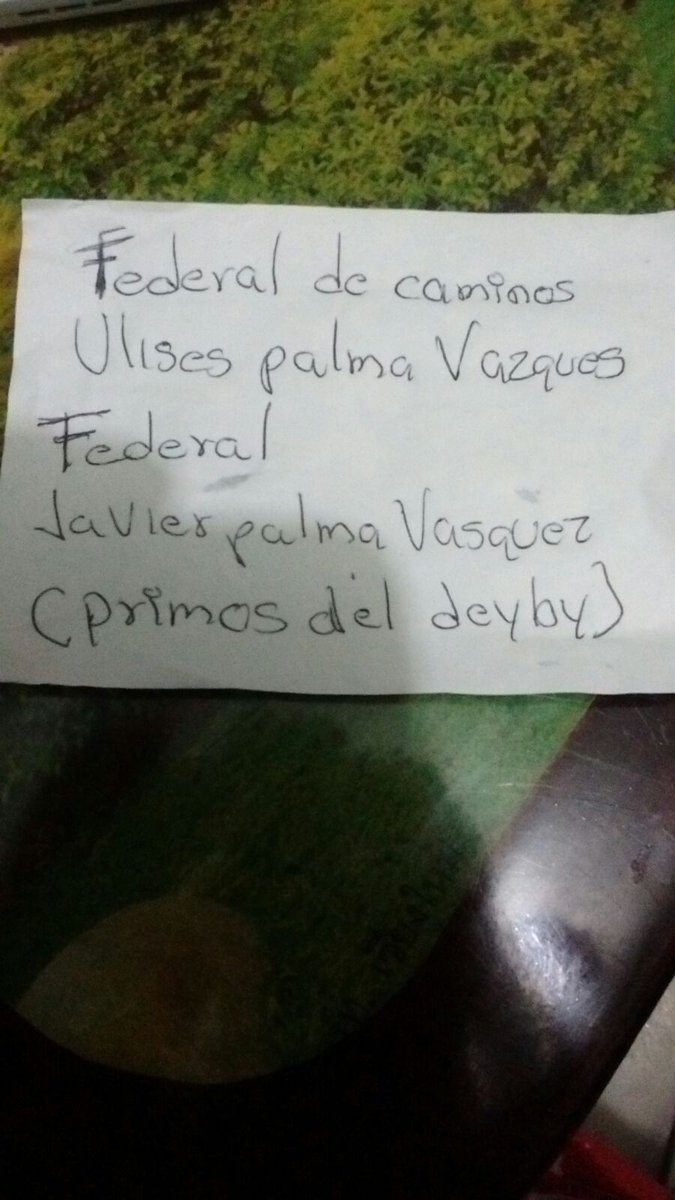 Federal de caminos
Ulises palma Vazques
Federal
Javier palma Vasquez
(primos del deyby)